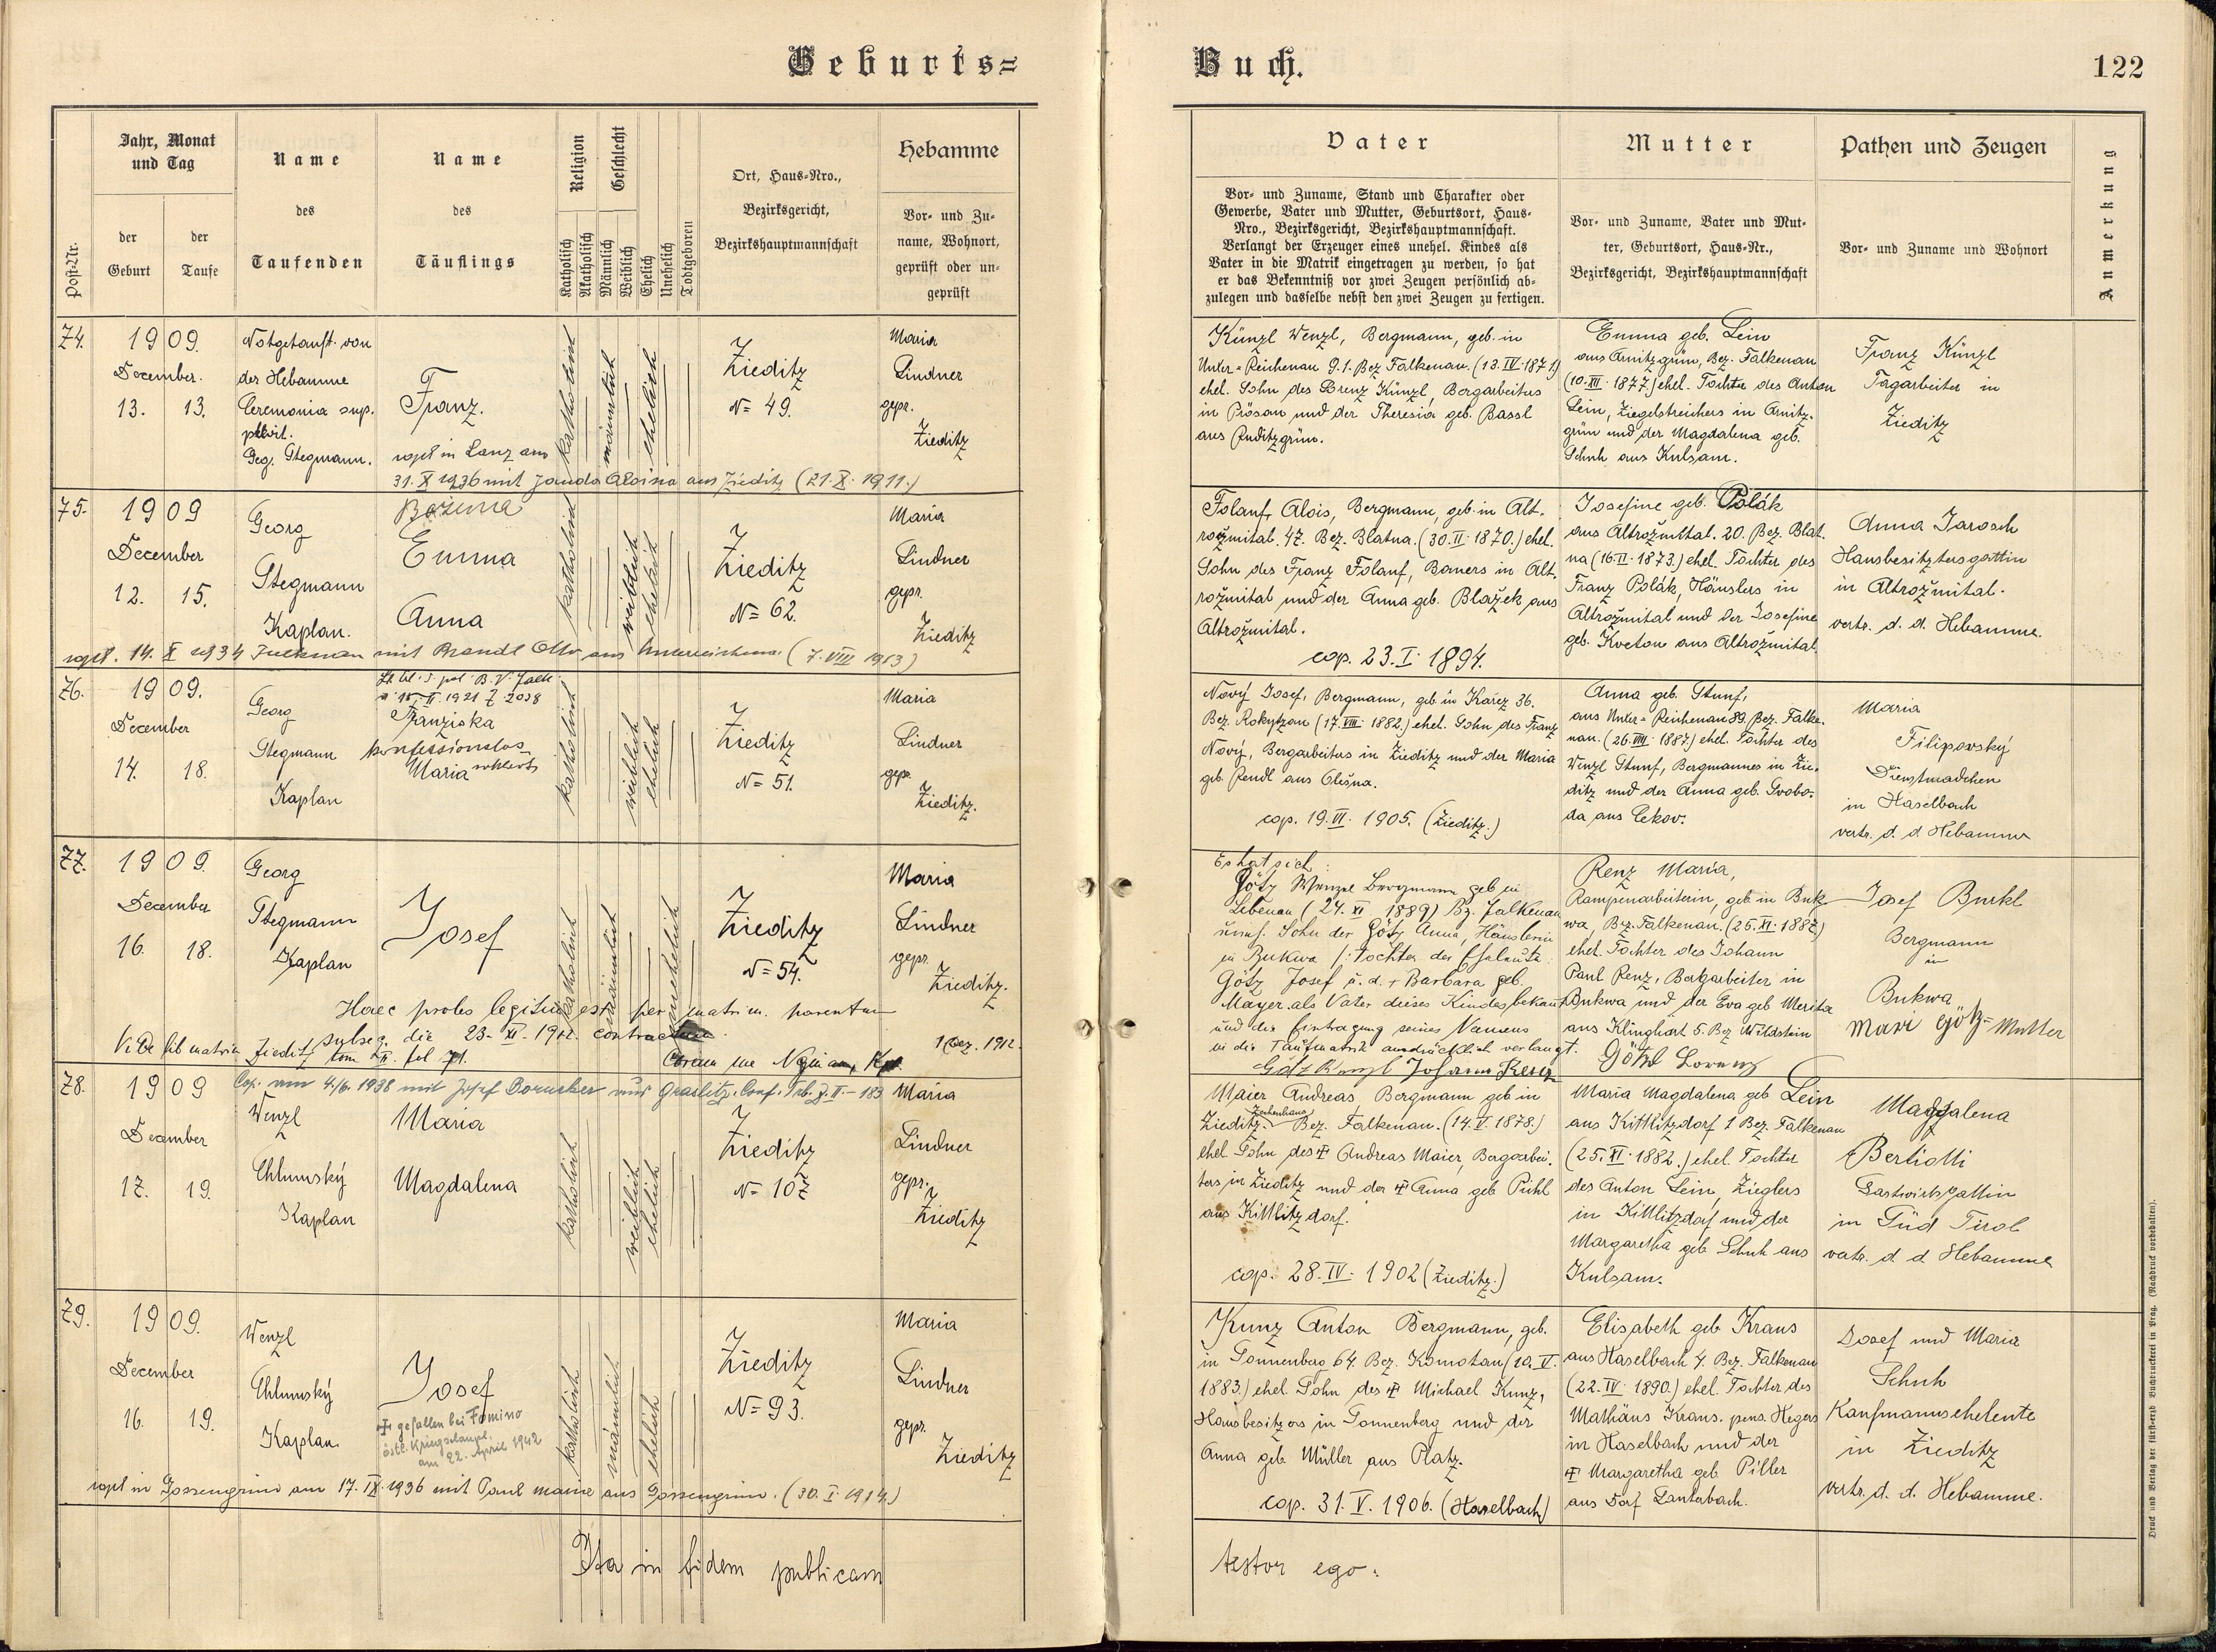 Geburts=
Buch.
122
Post-Nr.
Jahr, Monat
und Tag
der
Geburt
der
Taufe
Name
des
Taufenden
Name
des
Täuflings
Religion
Katholisch
Akatholisch
Geschlecht
Männlich
Weiblich
Ehelich
Unehelich
Todtgeboren
Ort, Haus-Nro.,
Bezirksgericht,
Bezirkshauptmannschaft
Hebamme
Vor- und Zu-
name, Wohnort,
geprüft oder un-
geprüft
Vater
Vor- und Zuname, Stand und Charakter oder
Gewerbe, Vater und Mutter, Geburtsort, Haus-
Nro., Bezirksgericht, Bezirkshauptmannschaft.
Verlangt der Erzeuger eines unehel. Kindes als
Vater in die Matrik eingetragen zu werden, so hat
er das Bekenntniß vor zwei Zeugen persönlich ab-
zulegen und dasselbe nebst den zwei Zeugen zu fertigen.
Mutter
Vor- und Zuname, Vater und Mut-
ter, Geburtsort, Haus-Nr.,
Bezirksgericht, Bezirkshauptmannschaft
Pathen und Zeugen
Vor- und Zuname und Wohnort
Anmerkung
74.
1909.
December.
13. 13.
Notgetauft von
der Hebamme
Ceremonia sup-
plevit.
Geg. Stegmann.
Franz.
copul in Lanz am
31. X 1936 mit Janda Aloisia aus Zieditz (21. X. 1911.)
katholisch
männlich
ehelich
Zieditz
N= 49.
Maria
Lindner
gepr.
Zieditz
Künzl Wenzl, Bergmann, geb. in
Unter=Reichenau 91. Bez Falkenau. (13. IV. 1871)
ehel. Sohn des Lorenz Künzl, Bergarbeiters
in Prösau und der Theresia geb. Bassl
aus Ruditzgrün.
Emma geb. Lein
aus Arnitzgrün, Bez. Falkenau
(10. XII. 1877.) ehel. Tochter des Anton
Lein, Ziegelstreichers in Arnitz-
grün und der Magdalena geb.
Schuh aus Kulsam.
Franz Künzl
Tagarbeiter in
Zieditz
75.
1909
December
12. 15.
Georg
Stegmann
Kaplan.
Božena
Emma
Anna
katholisch
weiblich
ehelich
Zieditz
N= 62.
Maria
Lindner
gepr.
Zieditz
copul. 14. X 1934 Falkenau mit Brandl Otto aus Unterreichenau (7. VIII 1913)
Folauf, Alois, Bergmann, geb. in Alt-
rožmital. 47. Bez. Blatna. (30. II. 1870.) ehel.
Sohn des Franz Folauf, Bauers in Alt-
rožmital und der Anna geb. Blažek, aus
Altrožmital.
cop. 23. I. 1894.
Josefine geb. Polák
aus Altrožmital. 20. Bez. Blat-
na (16. II. 1873.) ehel. Tochter des
Franz Polák, Häuslers in
Altrožmital und der Josefine
geb. Kveton aus Altrožmital
Anna Jarosch
Hausbesitzersgattin
in Altrožmital.
vertr. d. d. Hebamme.
76.
1909.
December
14. 18.
Georg
Stegmann
Kaplan
Franziska
konfessionslos
Maria
katholisch
weiblich
ehelich
Zieditz
N= 51.
Maria
Lindner
gepr.
Zieditz.
Nový Josef, Bergmann, geb in Karez 36.
Bez. Rokytzan (17. VIII. 1882.) ehel. Sohn des Franz
Nový, Bergarbeiters in Zieditz und der Maria
geb. Rendl aus Olešna.
cop. 19. VI. 1905. (Zieditz.)
Anna geb. Stunf,
aus Unter=Reichenau 89. Bez. Falke-
nau. (26. VIII. 1887.) ehel. Tochter des
Wenzl Stunf, Bergmannes in Zie-
ditz und der Anna geb. Svobo-
da aus Cekov.
Maria
Filipovský
Dienstmädchen
in Haselbach
vertr. d. d Hebamme
77.
1909.
December
16. 18.
Georg
Stegmann
Kaplan
Josef
katholisch
männlich
unehelich
Zieditz
N= 54.
Maria
Lindner
gepr.
Zieditz.
Haec proles legitima est per matrim. parentum
subseq. die 23. XI. 1912. contractum
Vide lib matrim Zieditz tom II. fol 71.
1 Dez. 1912.
Es hat sich:
Götz Wenzel Bergmann geb in
Lebenau (24. XI 1889) Bz. Falkenau
unehel. Sohn der Götz Anna, Häuslerin
in Bukwa /: Tochter der Eheleute
Götz Josef u. d. + Barbara geb.
Mayer als Vater dieses Kindes bekannt
und die Eintragung seines Namens
in die Taufmatrik ausdrücklich verlangt.
Götz Wenzl Johann Renz
Renz Maria,
Rampenarbeiterin, geb. in Buk-
wa, Bez. Falkenau. (25. XI. 1887)
ehel. Tochter des Johann
Paul Renz, Bergarbeiter in
Bukwa und der Eva geb
aus Klinghart 5. Bez Wildstein
Götzl Lorenz
Josef Burkl
Bergmann
in
Bukwa
Mari Götz= Mutter
78.
1909
December
17. 19.
Cop. am 4./6. 1938 mit Josef Bornecker aus Graslitz.
Wenzl
Chlumský
Kaplan
Maria
Magdalena
katholisch
weiblich
ehelich
Zieditz
N= 107
Maria
Lindner
gepr.
Zieditz
Maier Andreas, Bergmann geb in
Zieditz. Zechenhaus Bez. Falkenau. (14. V. 1878.)
ehel. Sohn des + Andreas Maier, Bergarbei-
ters in Zieditz und der + Anna geb Pühl
aus Kittlitzdorf.
cop. 28. IV. 1902 (Zieditz.)
Maria Magdalena geb Lein
aus Kittlitzdorf 1 Bez. Falkenau
(25. XI. 1882.) ehel. Tochter
des Anton Lein, Zieglers
in Kittlitzdorf und der
Margaretha geb. Schuh aus
Kulsam.
Magdalena
Bertiolli
Gastwirtsgattin
in Süd Tirol
vertr. d. d Hebamme
79.
1909.
December
16. 19.
Wenzl
Chlumský
Kaplan.
Josef
+ gefallen bei Fomino
östl. Kriegsschaupl.
am 22. April 1942
katholisch
männlich
ehelich
Zieditz
N= 93.
Maria
Lindner
gepr.
Zieditz
copul in Gossengrün am 17. IX. 1936 mit Paul Marie aus Gossengrün. (30. I. 1914.)
Kunz Anton Bergmann, geb.
in Sonnenberg 64. Bez. Komotau (10. V.
1883.) ehel. Sohn des + Michael Kunz,
Hausbesitzers in Sonnenberg und der
Anna geb. Müller aus Platz.
cop. 31. V. 1906. (Haselbach)
Elisabeth geb Kraus
aus Haselbach 4. Bez. Falkenau
(22. IV. 1890.) ehel. Tochter des
Mathäus Kraus. pens. Hegers
in Haselbach und der
+ Margaretha geb. Piller
aus Dorf Lauterbach.
Josef und Maria
Schuh
Kaufmannseheleute
in Zieditz
vertr. d. d. Hebamme.
Ita in fidem publicam
testor ego:
Druck und Verlag der fürst-erzb Buchdruckerei in Prag. (Nachdruck vorbehalten).